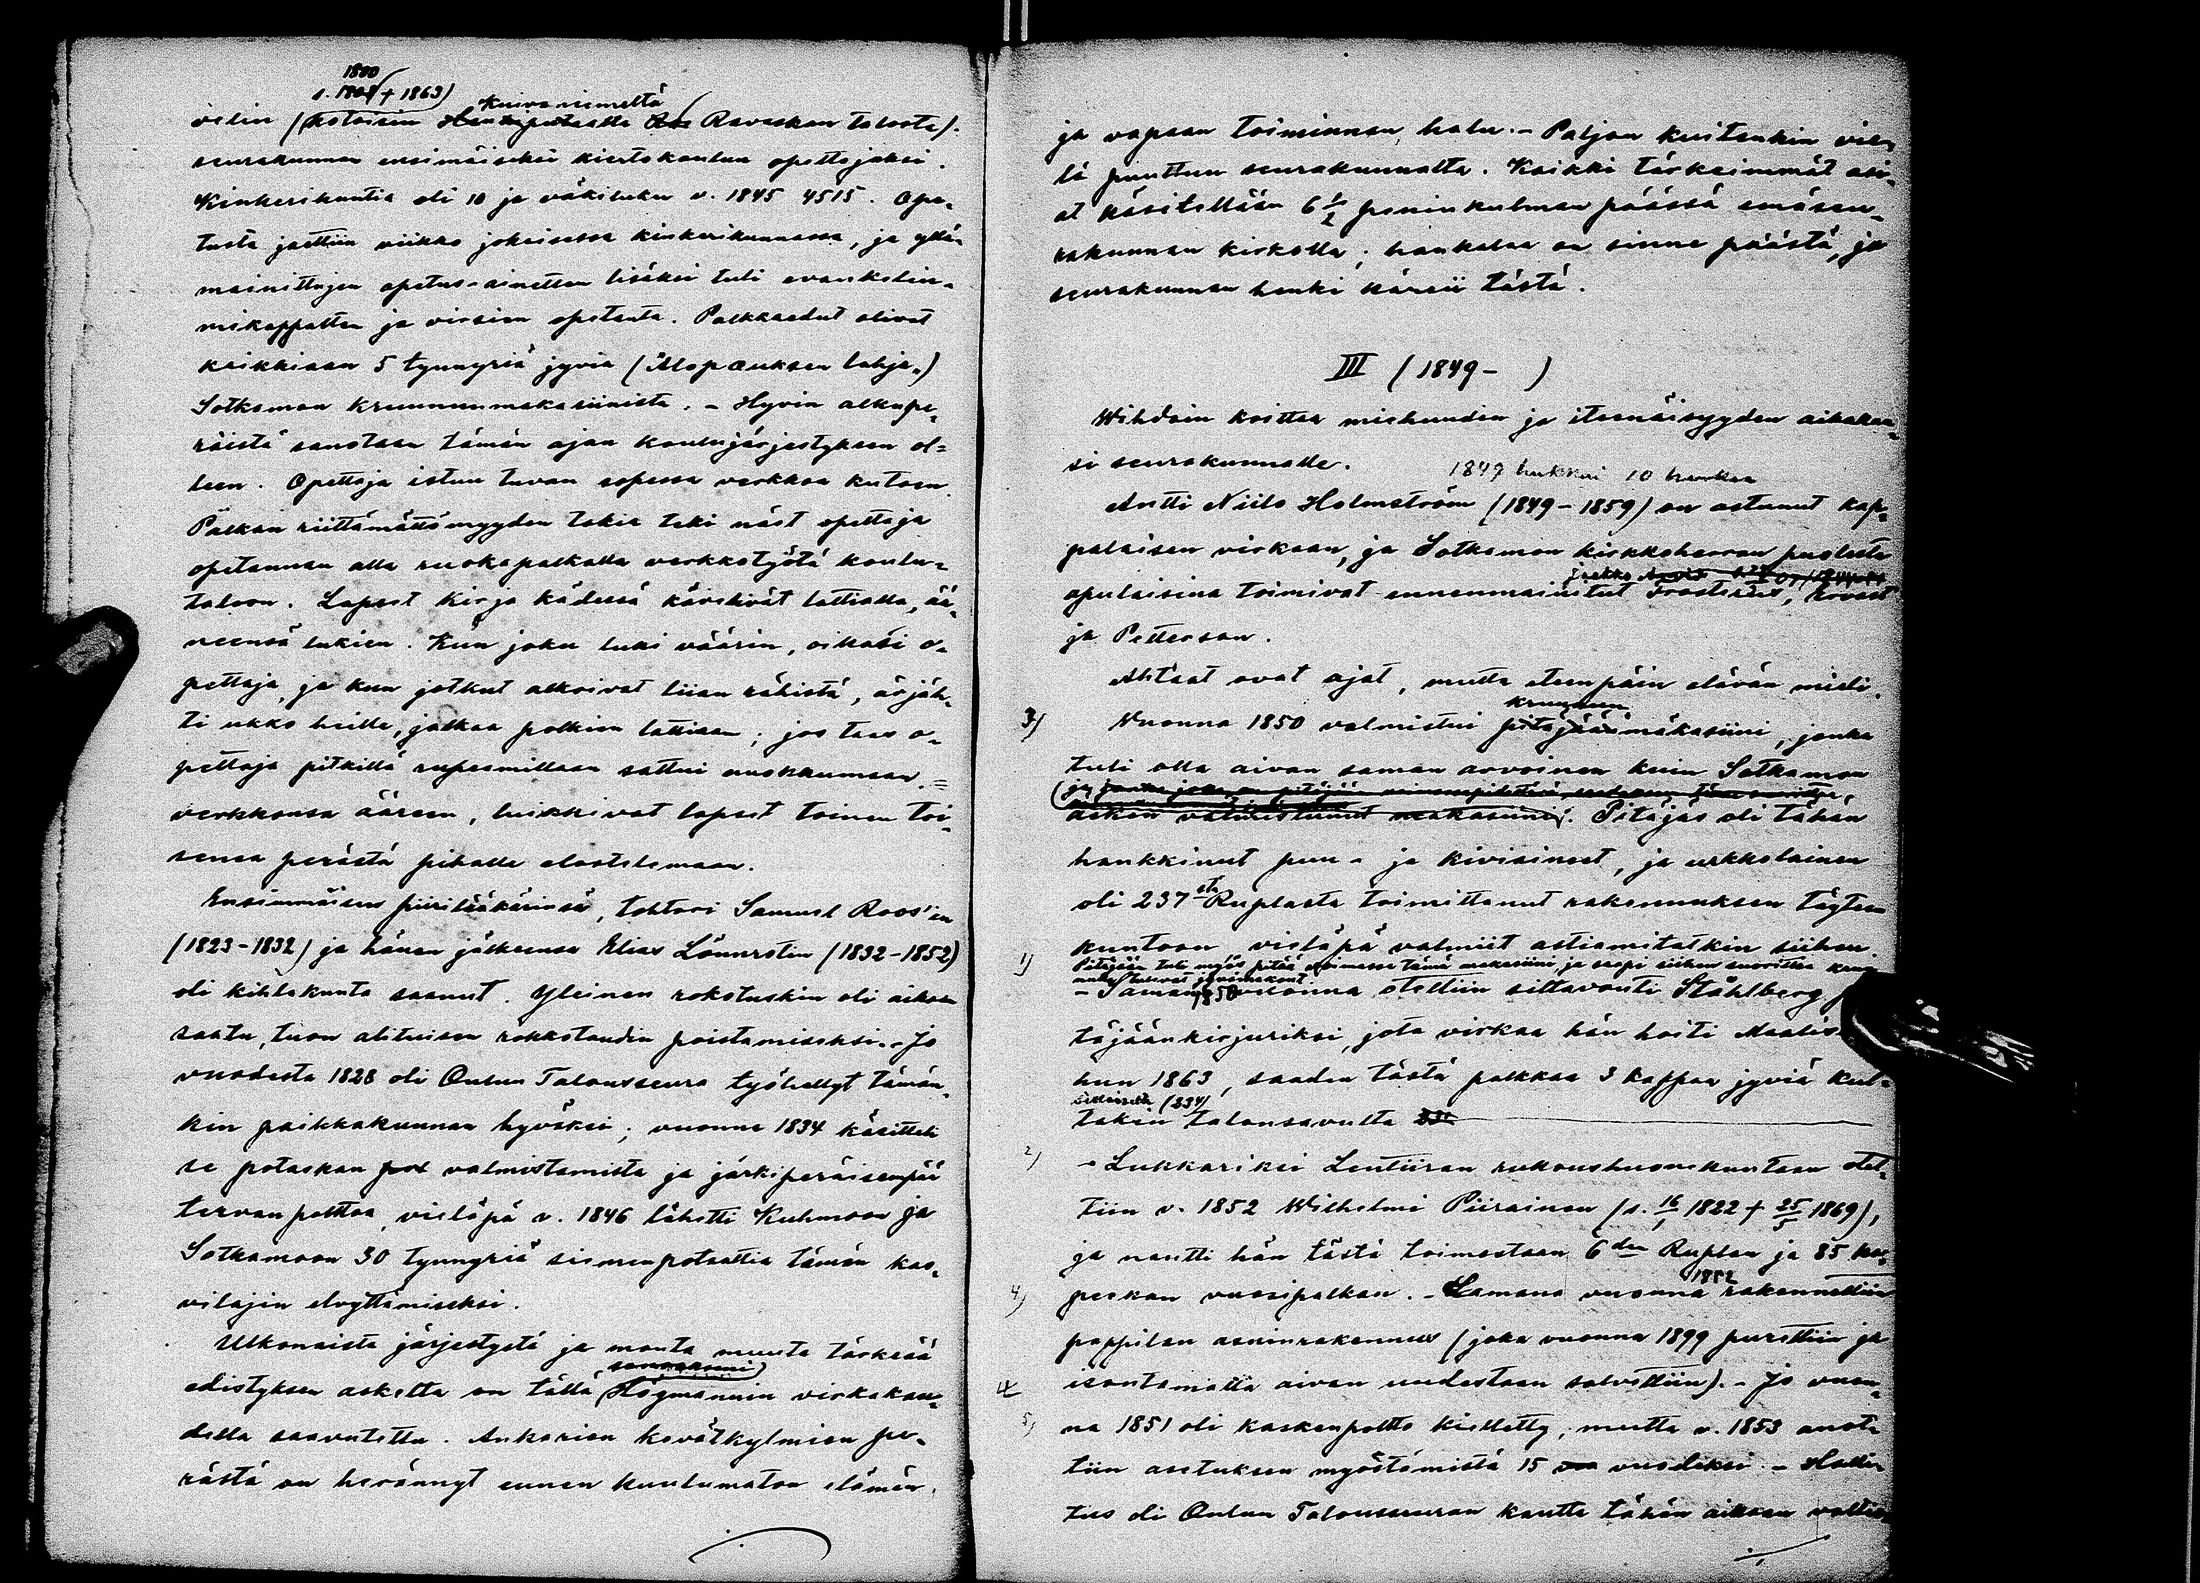 1800
s. 1801 + 1863)
Kuivaniemeltä
velin (kotoisin Ravaskan talosta).
seurakunnan ensimäiseksi kiertokoulun opettajaksi.
Kinkerikuntia oli 10 ja väkiluku v. 1845 4515. Ope-
tusta jaettiin viikko jokaisessa kinkerikunnassa, ja yllä-
mainittujen opetus-ainetten lisäksi tuli evankeliu-
mikappatten ja virsien opetusta. Palkkaedut olivat
kaikkiaan 5 tynnyriä jyviä (Alopæuksen lahja")
Sotkamon kruununmakasiinista. - Hyvin alkupe-
räistä sanotaan tämän ajan koulujärjestyksen ol-
leen. Opettaja istuu tuvan sopessa verkkoa kutoen.
Palkan riittämättömyyden takia teki näet opettaja
opetannan alla ruokapalkalla verkkotyötä koulu-
taloon. Lapset kirja kädessä kävelivät lattialla, ää-
neensä lukien. Kun joku luki väärin, oikasi o-
pettaja, ja kun jotkut alkoivat liian rähistä, ärjäh-
ti ukko heille, jalkaa polkien lattiaan; jos taas o-
pettaja pitkillä rupeamillaan sattui nuokkumaan
verkkonsa ääreen, luikkivat lapset toinen toi-
sensa perästä pihalle elostelemaan.
Ensimmäisen piirilääkärinsä, tohtori Samuel Roos'in
(1823-1832) ja hänen jälkeensä Elias Lönnrotin (1832-1852)
oli kihlakunta saanut. Yleinen rokotuskin oli aikaan
saatu, tuon alituisen rokkotaudin poistamiseksi. - Jo
vuodesta 1828 oli Oulun Talousseura työskellyt tämän-
kin paikkakunnan hyväksi; vuonna 1834 käsitteli
se potaskan pol valmistamista ja järkiperäisempää
tervanpolttoa, vieläpä v. 1846 lähetti Kuhmoon ja
Sotkamoon 30 tynnyriä siemenpotaattia tämän kas-
vilajin elvyttämiseksi.
Ulkonaista järjestystä ja monta muuta tärkeää
edistyksen askelta on tällä Högmannin virkakau-
della saavutettu. Ankarien kevätkylmien pe-
rästä on herännyt ennen kuulumaton elämän
ja vapaan toiminnan halu. - Paljon kuitenkin vie-
lä puuttuu seurakunnalta. Kaikki tärkeimmät asi-
at käsitellään 6 1/2 peninkulman päässä emäseu-
rakunnan kirkolla; hankalaa on sinne päästä, ja
seurakunnan henki kärsii tästä.
III (1849- )
Wihdoin koittaa miehuuden ja itsenäisyyden aikakau-
si seurakunnalle. 1849 hukkui 10 henkeä
Antti Niilo Holmström (1849-1859) on astunut kap-
palaisen virkaan, ja Sotkamon kirkkoherran puolesta
apulaisina toimivat ennenmainitut Frosterus,
ja Petterson.
Ahtaat ovat ajat, mutta eteenpäin elävän mieli.
kruunun
3) Vuonna 1850 valmistui pitäjään makasiini, jonka
tuli olla aivan saman arvoinen kuin Sotkamon
äsken valmistunut makasiini. Pitäjäs oli tähän
hankkinut puu- ja kiviaineet, ja urkkolainen
oli 237 sta Ruplasta toimittanut rakennuksen täyteen
kuntoon, vieläpä valmiit astiamitatkin siihen.
1) Pitäjään tuli myös pitää voimassa tämä makasiini, ja sai siihen suorittaa
- Samana vuonna otettiin siltavouti Ståhlberg
1850
täjäänkirjuriksi, jota virkaa hän hoiti Maalis
hun 1863, saaden tästä palkkaa 3 kappaa jyviä kul-
(334)
takin talonsavulta
2) - Lukkariksi Lentiiran rukoushuonekuntaan otet-
tiin v. 1852 Wilhelmi Piirainen (s. 16/1 1822 + 25/5 1869),
ja nautti hän tästä toimestaan 6 den Ruplan ja 85 ko-
1852
4) peekan vuosipalkan. - Samana vuonna rakennettiin
pappilan asuinrakennus (joka vuonna 1899 purettiin ja
isontamatta aivan uudestaan salvettiin). - Jo vuon-
5) na 1851 oli kaskenpoltto kielletty, mutta v. 1853 anot-
tiin asetuksen myöstämistä 15 vuodeksi. - Halli-
tus oli Oulun Talousseuran kautta tähän aikaan